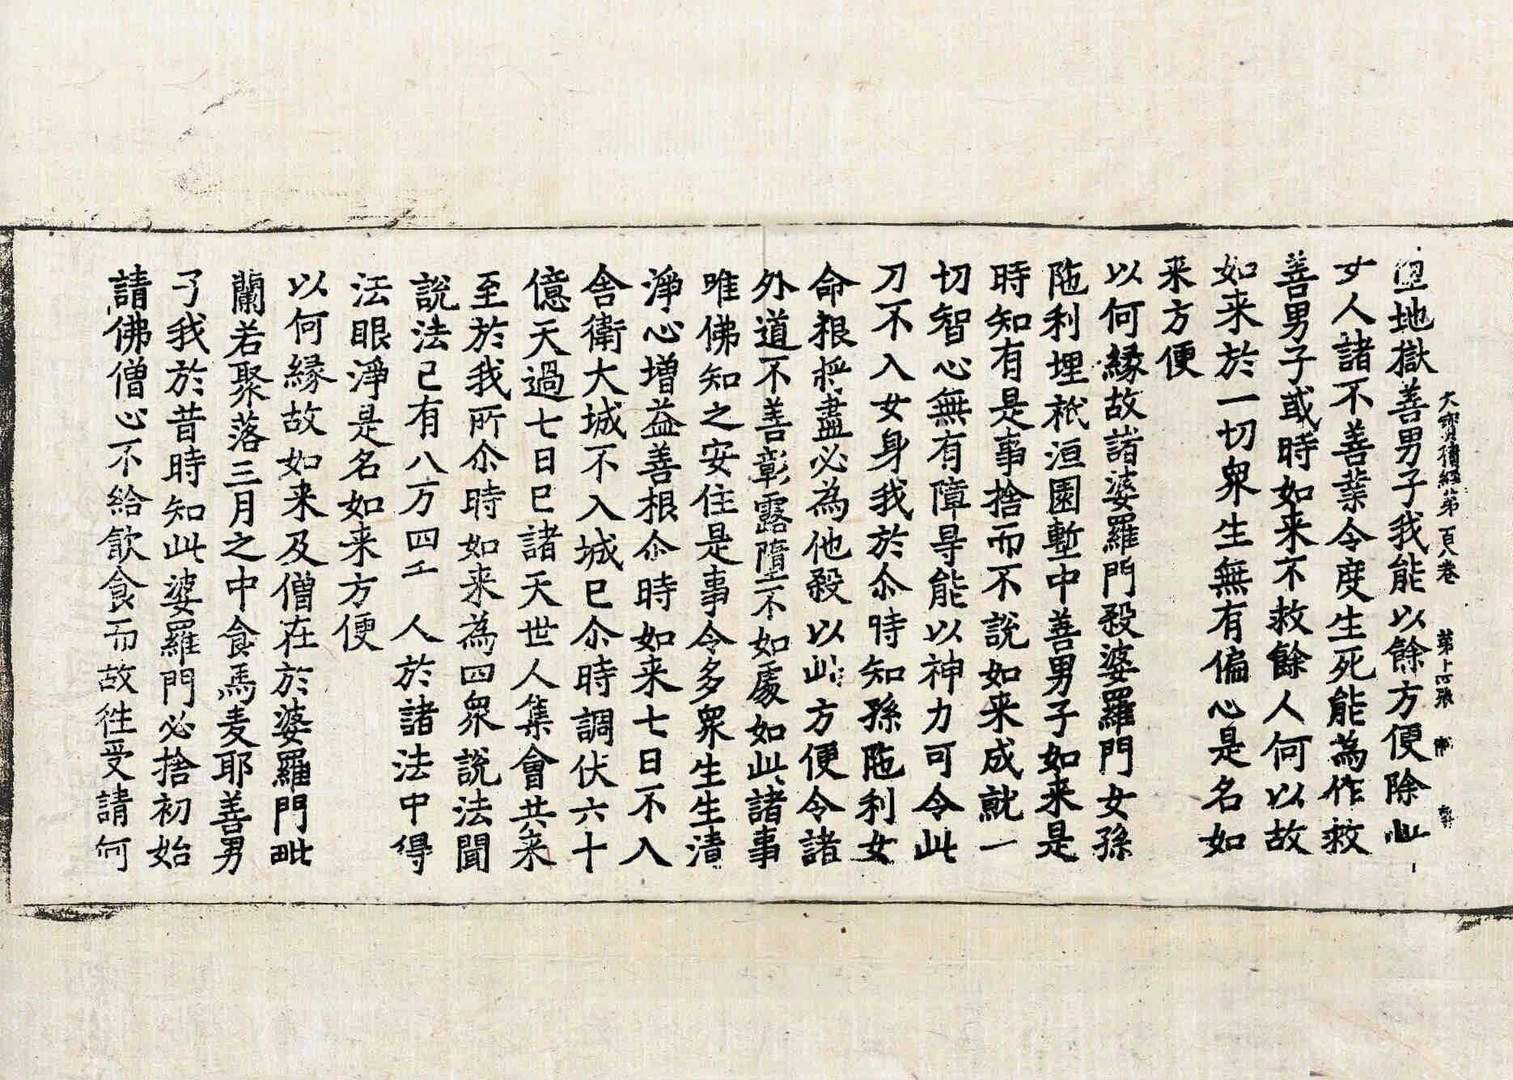 大寶積經第一百八卷 第十四張
地獄善男子我能以餘方便除此一
女人諸不善業令度生死能為作救
善男子或時如来不救餘人何以故
如来於一切衆生無有偏心是名如
来方便
以何縁故諸婆羅門殺婆羅門女孫
陁利埋祇洹園塹中善男子如来是
時知有是事捨而不說如来成就一
切智心無有障㝵能以神力可令此
刀不入女身我於尒時知孫陁利女
命根将盡必為他殺以此方便令諸
外道不善彰露墮不如處如此諸事
唯佛知之安住是事令多衆生生清
淨心増益善根尒時如来七日不入
舎衛大城不入城已尒時調伏六十
億天過七日已諸天世人集會共来
至於我所尒時如来為四衆說法聞
說法已有八万四千人於諸法中得
法眼淨是名如来方便
以何縁故如来及僧在於婆羅門毗
蘭若聚落三月之中食馬麦耶善男
子我於昔時知此婆羅門必捨初始
請佛僧心不給飲食而故往受請何